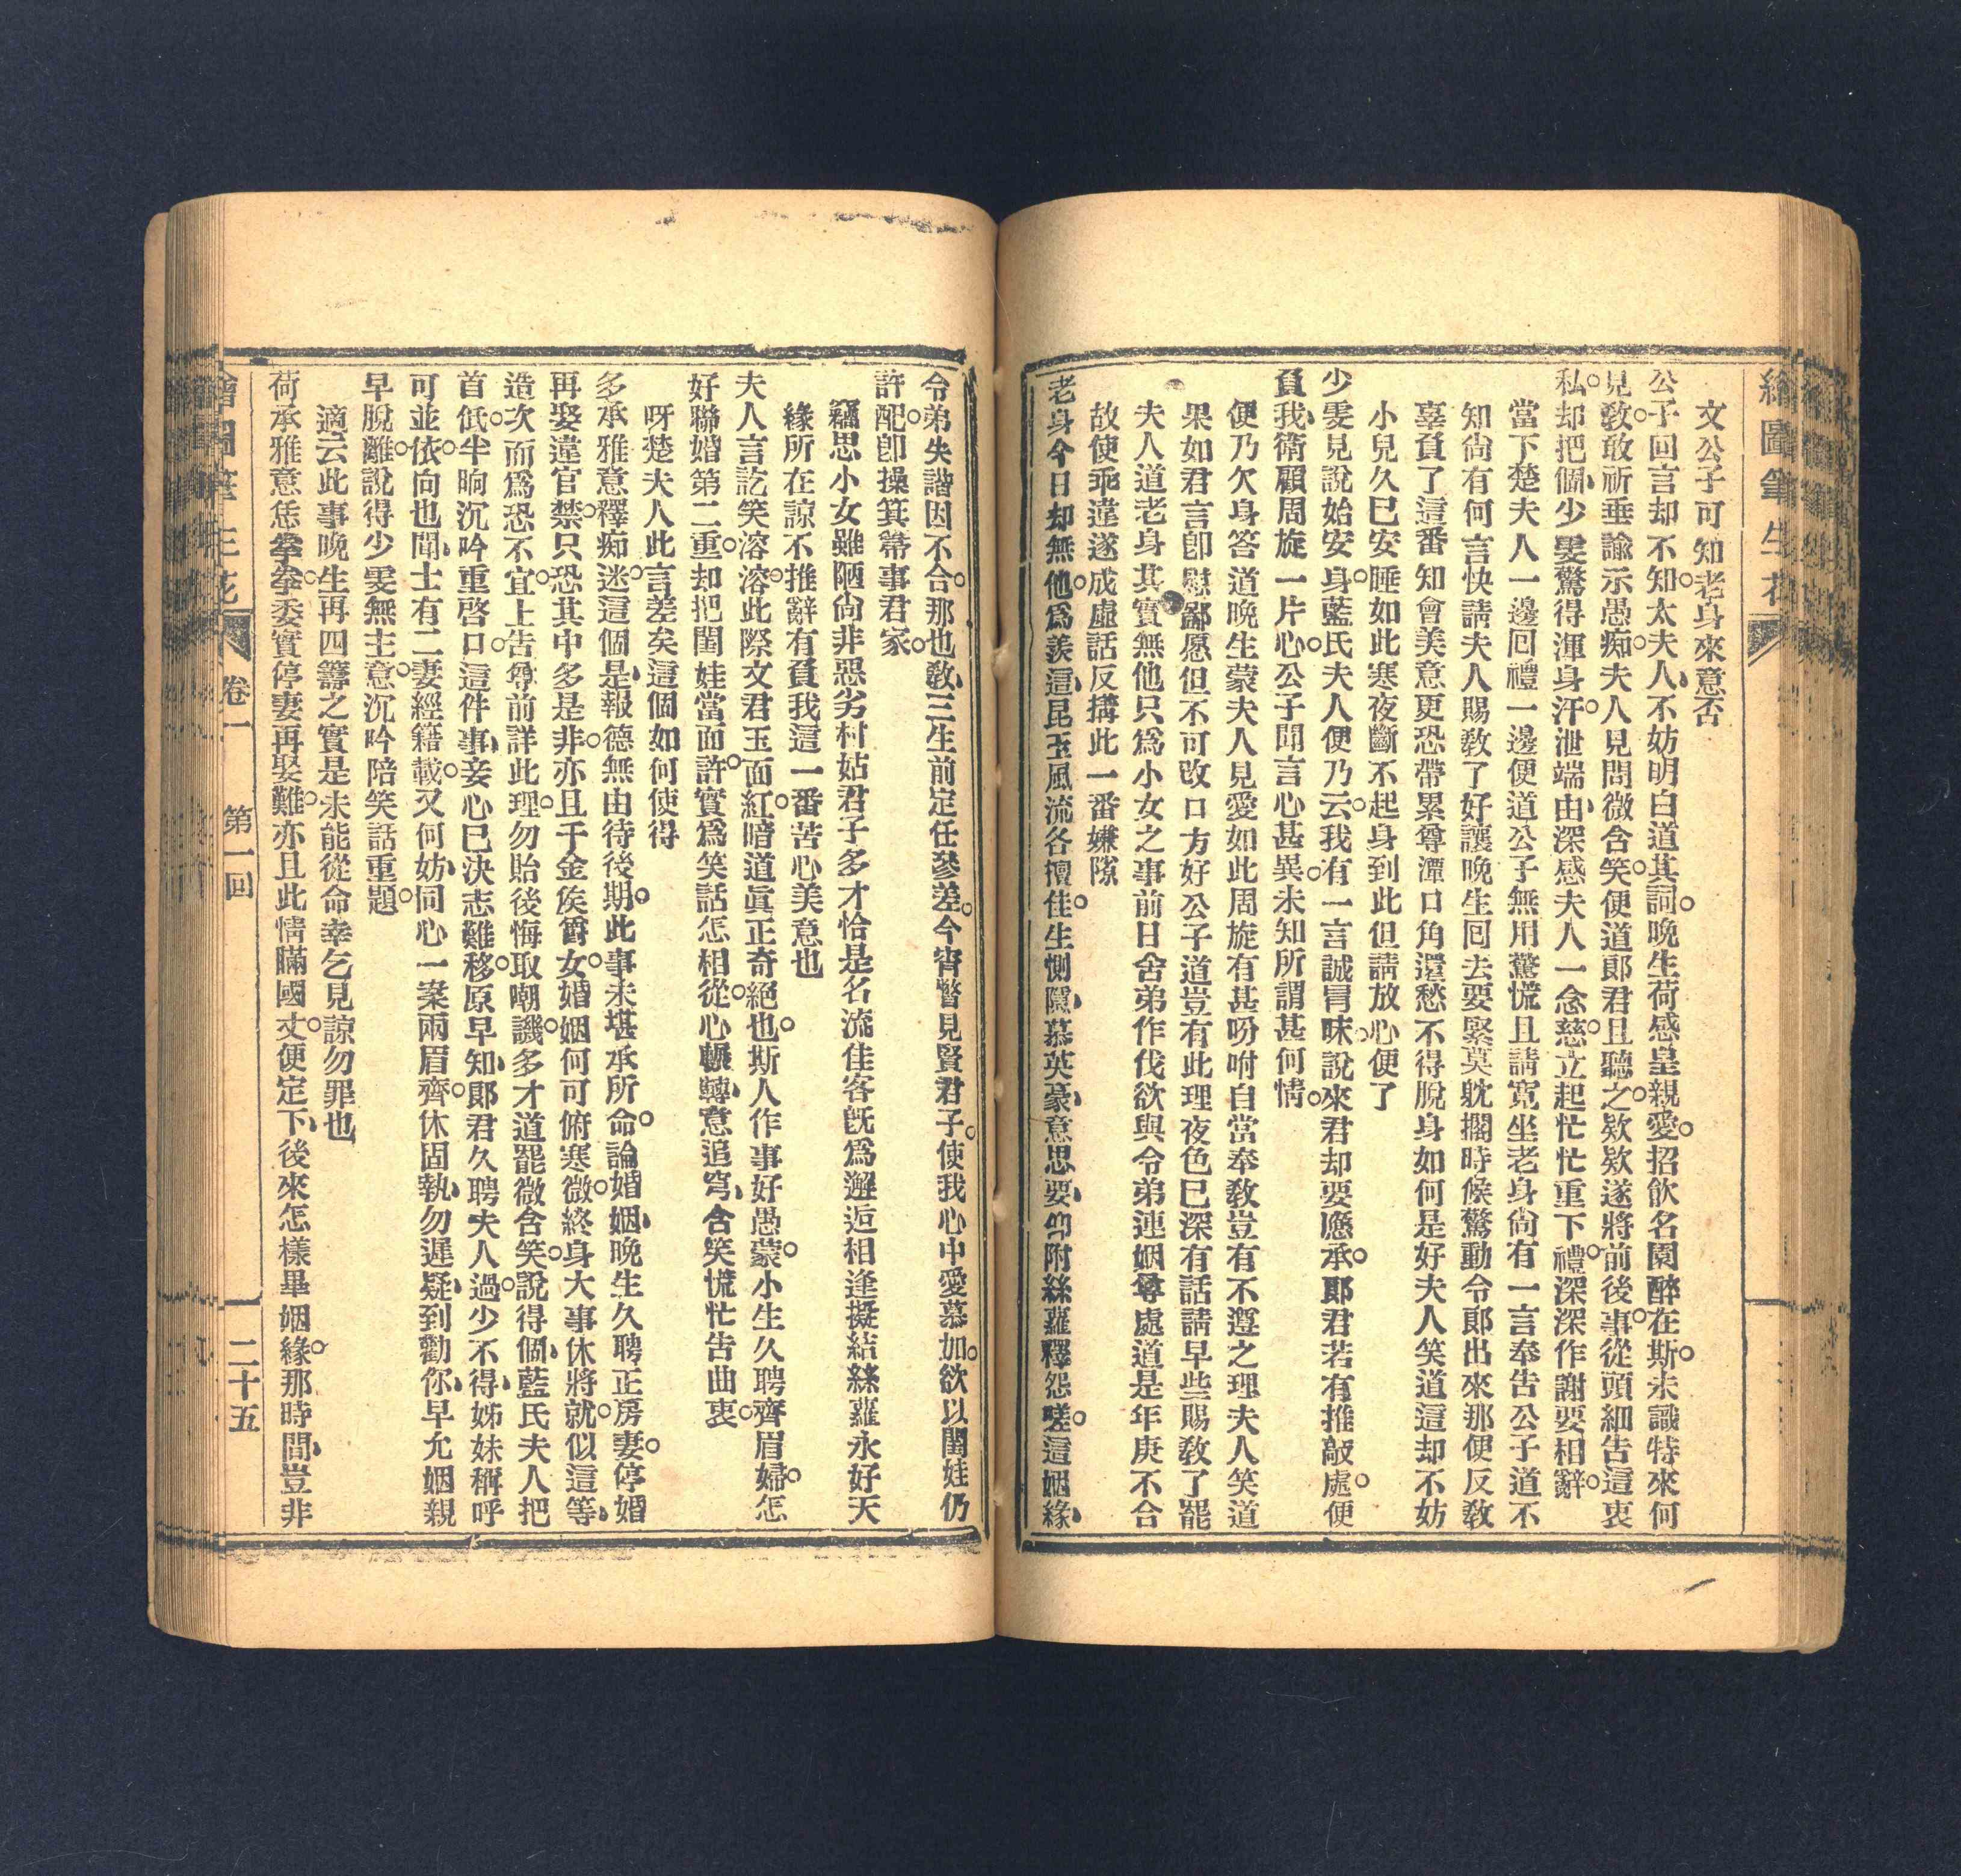 繪圖筆生花
文公子可知老身來意否
公子回言却不知。太夫人、不妨明白道其詞。晚生荷感皇親愛。招飲名園醉在斯。未識特來何
見教、敢祈垂諭示愚痴。夫人見問微含笑。便道郞君且聽之。欵欵遂將前後事。從頭細告這衷
私。却把個、少雯驚得渾身汗。泄端由、深感夫人一念慈。立起忙忙重下禮。深深作謝要相辭。
當下楚夫人一邊回禮一邊便道公子無用驚慌且請寬坐老身尙有一言奉告公子道不
知尙有何言快請夫人賜敎了好讓晚生回去要緊莫躭擱時候驚動令郞出來那便反敎
辜負了這番知會美意更恐帶累尊潭口角還愁不得脫身如何是好夫人笑道這却不妨
小兒久已安睡如此寒夜斷不起身到此但請放心便了
少雯見說始安身。藍氏夫人便乃云。我有一言誠冒昧。說來君却要應承。郞君若有推敲處。便
負我、衛顧周旋一片心。公子聞言心甚異。未知所謂甚何情。
便乃欠身答道晚生蒙夫人見愛如此周旋有甚吩咐自當奉敎豈有不遵之理夫人笑道
果如君言卽慰鄙愿但不可改口方好公子道豈有此理夜色已深有話請早些賜敎了罷
夫人道老身其實無他只爲小女之事前日舍弟作伐欲與令弟連姻尊處道是年庚不合
故使乖違遂成虛話反搆此一番嫌隙
老身今日却無他。爲羨這、昆玉風流各擅佳。生惻隱、慕英豪、意思要、仰附絲蘿釋怨嗟。這姻緣、
令弟失諧因不合。那也敎、三生前定任參差。今宵瞥見賢君子。使我心中愛慕加。欲以閨娃仍
許配。卽操箕箒事君家。
竊思小女雖陋尙非惡劣村姑君子多才恰是名流佳客旣爲邂逅相逢擬結絲蘿永好天
緣所在諒不推辭有負我這一番苦心美意也
夫人言訖笑溶溶。此際文君玉面紅。暗道眞正奇絕也。斯人作事好愚蒙。小生久聘齊眉婦。怎
好聯婚第二重。却把閨娃當面許。實爲笑話怎相從。心輾轉、意追穹、含笑慌忙告曲衷。
呀楚夫人此言差矣這個如何使得
多承雅意釋痴迷。這個是、報德無由待後期。此事未堪承所命。論婚姻、晚生久聘正房妻。停婚
再娶違官禁。只恐其中多是非。亦且千金侯爵女。婚姻何可俯寒微。終身大事休將就。似這等、
造次而爲恐不宜。上告尊前詳此理。勿貽後悔取嘲譏。多才道罷微含笑。說得個、藍氏夫人把
首低。半晌沉吟重啓口。這件事、妾心已決志難移。原早知、郞君久聘夫人過。少不得、姊妹稱呼
可並依。向也聞、士有二妻經籍載。又何妨、同心一案兩眉齊。休固執、勿遲疑、到勸你、早允姻親
早脫離。說得少雯無主意。沉吟陪笑話重題。
適云此事晚生再四籌之實是未能從命幸乞見諒勿罪也
荷承雅意恁拳拳。委實停妻再娶難。亦且此情瞞國丈。便定下、後來怎樣畢姻緣。那時間、豈非
繪圖筆生花 卷一 第一回 二十五